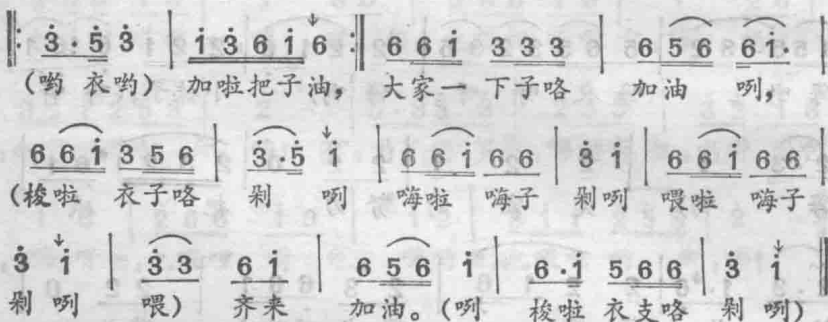 ‖: 3̇ · 5̇ 3̇ | 1̇ 3̇ 6 1̇ 6 :‖ 6 6 1̇ 3 3 3 | 6 5 6 6 1̇ |
(哟 衣哟) 加啦把子油, 大家一 下子咯 加油 咧,
6 6 1̇ 3 5 6 | 3̇ · 5̇ 1̇ | 6 6 1̇ 6 6 | 3̇ 1̇ | 6 6 1̇ 6 6 |
(梭啦 衣子咯 剁 咧 嗨啦 嗨子 剁咧 喂啦 嗨子
3̇ 1̇ | 3̇ 3 6 1̇ | 6 5 6 1̇ | 6 · 1̇ 5 6 6 | 3̇ 1̇ ‖
剁 咧 喂) 齐来 加油。(咧 梭啦 衣支咯 剁 咧)